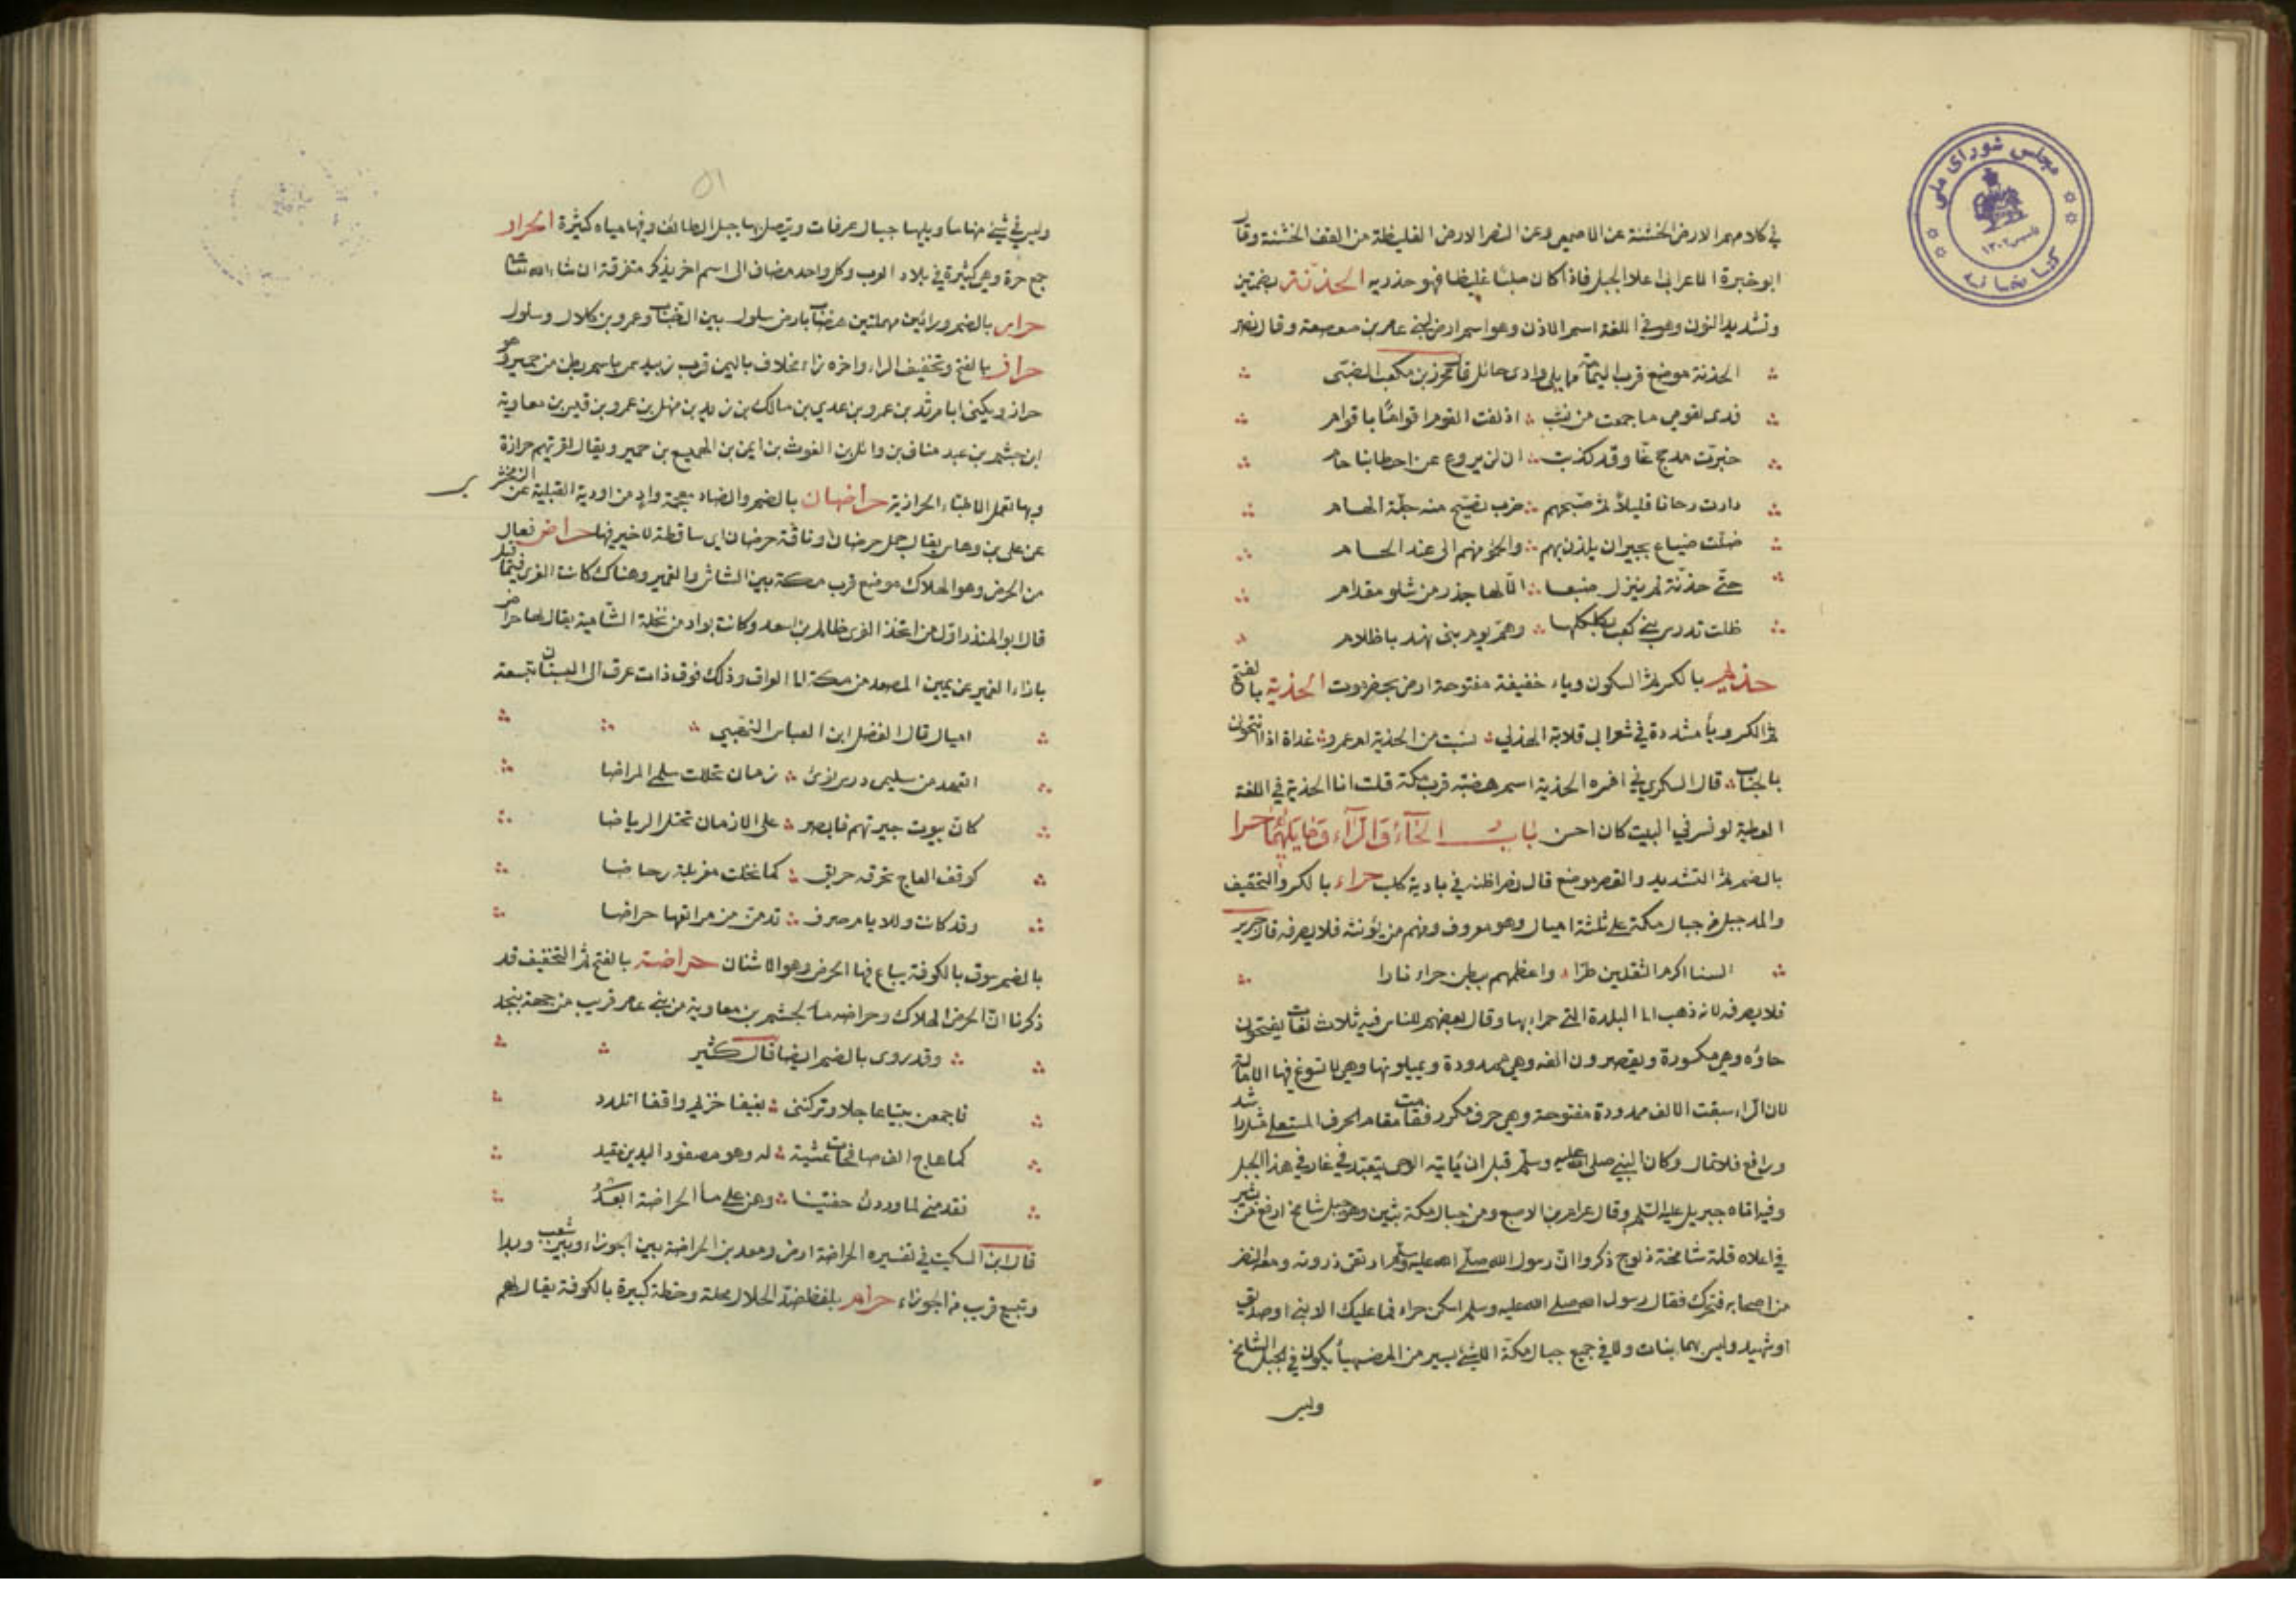 في كلامهم الارض الخشنة عن الاصمعي وعن النضر الارض الغليظة من القف الخشنة وقال
ابو خيرة الاعرابي اعلا الجبل فاذا كان صلبا غليظا فهو حذريه الحذنة بضمتين
وتشديد النون وهو في اللغة اسم الاذن وهو اسم ارض لبني عامر بن صعصعة وقال نصر
الحذنة موضع قرب اليمامة مما يلي وادي حائل قال محرز بن مكعبر الضبي
فدى لقومي ما جمعت من نشب اذ لفت القوم اقواما باقوام
خبرت مدحج عنا وقد كذبت ان لن يروع عن احسابنا حام
دارت رحانا قليلا ثم صبحهم ضرب تصيح منه جلة الهام
ظلت ضباع بجيران يلذن بهم والحموهم الى عند الحسام
حتى حذنة لم ينزل ضبعا الا لها جذر من شلو مقدام
ظلت تدوس بني كعب بكلكلها وهم يوم بني نهد باظلام
حذيم بالكسر ثم السكون وياء خفيفة مفتوحة ارض بحضرموت الحذية بالفتح
ثم الكسر ويا مشددة في شعر ابي قلابة الهذلي نسبت من الحذية ام عمرو غداة اذ انتحوني
بالجناب قال السكري في اخره الحذية اسم هضبة قرب مكة قلت انا الحذية في اللغة
العطية لو فسر في البيت كان احسن باب الحاء والراء وما يليهما حرا
بالضم ثم التشديد والقصر موضع قال نصر اظنه في بادية كلب حراء بالكسر والتخفيف
والمد جبل من جبال مكة على ثلثة اميال وهو معروف ومنهم من يؤنثه فلا يصرفه قال جرير
السنا اكرم الثقلين طرا واعظمهم ببطن حراء نارا
فلا يصرفه لانه ذهب الى البلدة التي حراء بها وقال بعضهم للناس فيه ثلاث لغات يفتحون
حاؤه وهي مكسورة ويقصرون الفه وهي ممدودة ويميلونها وهي لا تسوغ فيها الامالة
لان الراء سبقت الالف ممدودة مفتوحة وهي حرف مكرر فقامت مقام الحرف المستعلي مثل راشد
ورافع فلا تمال وكان النبي صلى الله عليه وسلم قبل ان ياتيه الوحي يتعبد في غار في هذا الجبل
وفيه اتاه جبريل عليه السلم وقال عرام بن الاصبع ومن جبال مكة ثبير وهو جبل شامخ ارفع من ثبير
في اعلاه قلة شامخة زلوج ذكروا ان رسول الله صلى الله عليه وسلم ارتقى ذروته ومعه نفر
من اصحابه فتحرك فقال رسول الله صلى الله عليه وسلم اسكن حراء فما عليك الا نبي او صديق
او شهيد وليس بهما نبات ولا في جميع جبال مكة الا شئ يسير من الضهيا يكون في الجبل الشامخ
وليس
٥١
وليس في شئ منها ماء ويليها جبال عرفات ويتصل بها جبل الطائف وفيها مياه كثيرة الحرار
جمع حرة وهي كثيرة في بلاد العرب وكل واحد مضاف الى اسم اخر يذكر متفرقة ان شاء الله تعالى
حرار بالضم ورائين مهملتين هضاب بارض سلول بين الضباب وعمرو بن كلاب وسلول
حراز بالفتح وتخفيف الراء واخره زاء مخلاف باليمن قرب زبيد سمي باسم بطن من حمير وهو
حراز ويكنى ابا مرثد بن عمرو بن عدي بن مالك بن زيد بن سهل بن عمرو بن قيس بن معاوية
ابن جشيم بن عبد مناف بن وائل بن الغوث بن ايمن بن الهميع بن حمير ويقال لقريتهم حرازة
وبها تعمل الاطباء الحرازية حراضان بالضم والضاد معجمة واد من اودية القبلية عن الزمخشري
عن علي بن وهاس يقال جمل حرضان وناقة حرضان اي ساقطة لا خير فيها حراض فعال
من الحرض وهو الهلاك موضع قرب مكة بين الشاش والغمير وهناك كانت العزى فيما قيل
قال ابو المنذر اول من اتخذ العزى ظالم بن اسعد وكانت بواد من نخلة الشامية يقال لها حراض
بازاء الغمير عن يمين المصعد من مكة الى العراق وذلك فوق ذات عرق الى البستان بتسعة
اميال قال الفضل ابن العباس اللهبي
اتعهد من سليمى درس نؤي زمان تحللت سلمى المراضا
كان بيوت جيرتهم فابصر على الازمان تحتل الرياضا
كوقف العاج تحرقه حريق كما نخلت مغربلة رحاضا
وقد كانت وللايام صرف تدمن من مراتعها حراضا
بالضم سوق بالكوفة يباع فيها الحرض وهو الاشنان حراضة بالفتح ثم التخفيف قد
ذكرنا ان الحرض الهلاك وحراضه ماء لجشيم بن معاوية من بني عامر قريب من جهة نجد
وقد روى بالضم ايضا قال كثير
فاجمعن بينا عاجلا وتركنني بفيفا خزيم واقفا اتلدد
كما هاج الف صافحات عشية له وهو مصفود اليدين مقيد
فقد منى لما وردن حفتينا وهن على ماء الحراضة ابعد
قال ابن السكيت في تفسيره الحراضة ارض ومعدن الحراضة بين الحوراء وبين شعب وبدا
وينبع قريب من الحوراء حرام بلفظ ضد الحلال محلة وخطة كبيرة بالكوفة يقال لهم
مجلس شورای ملی
كتابخانه